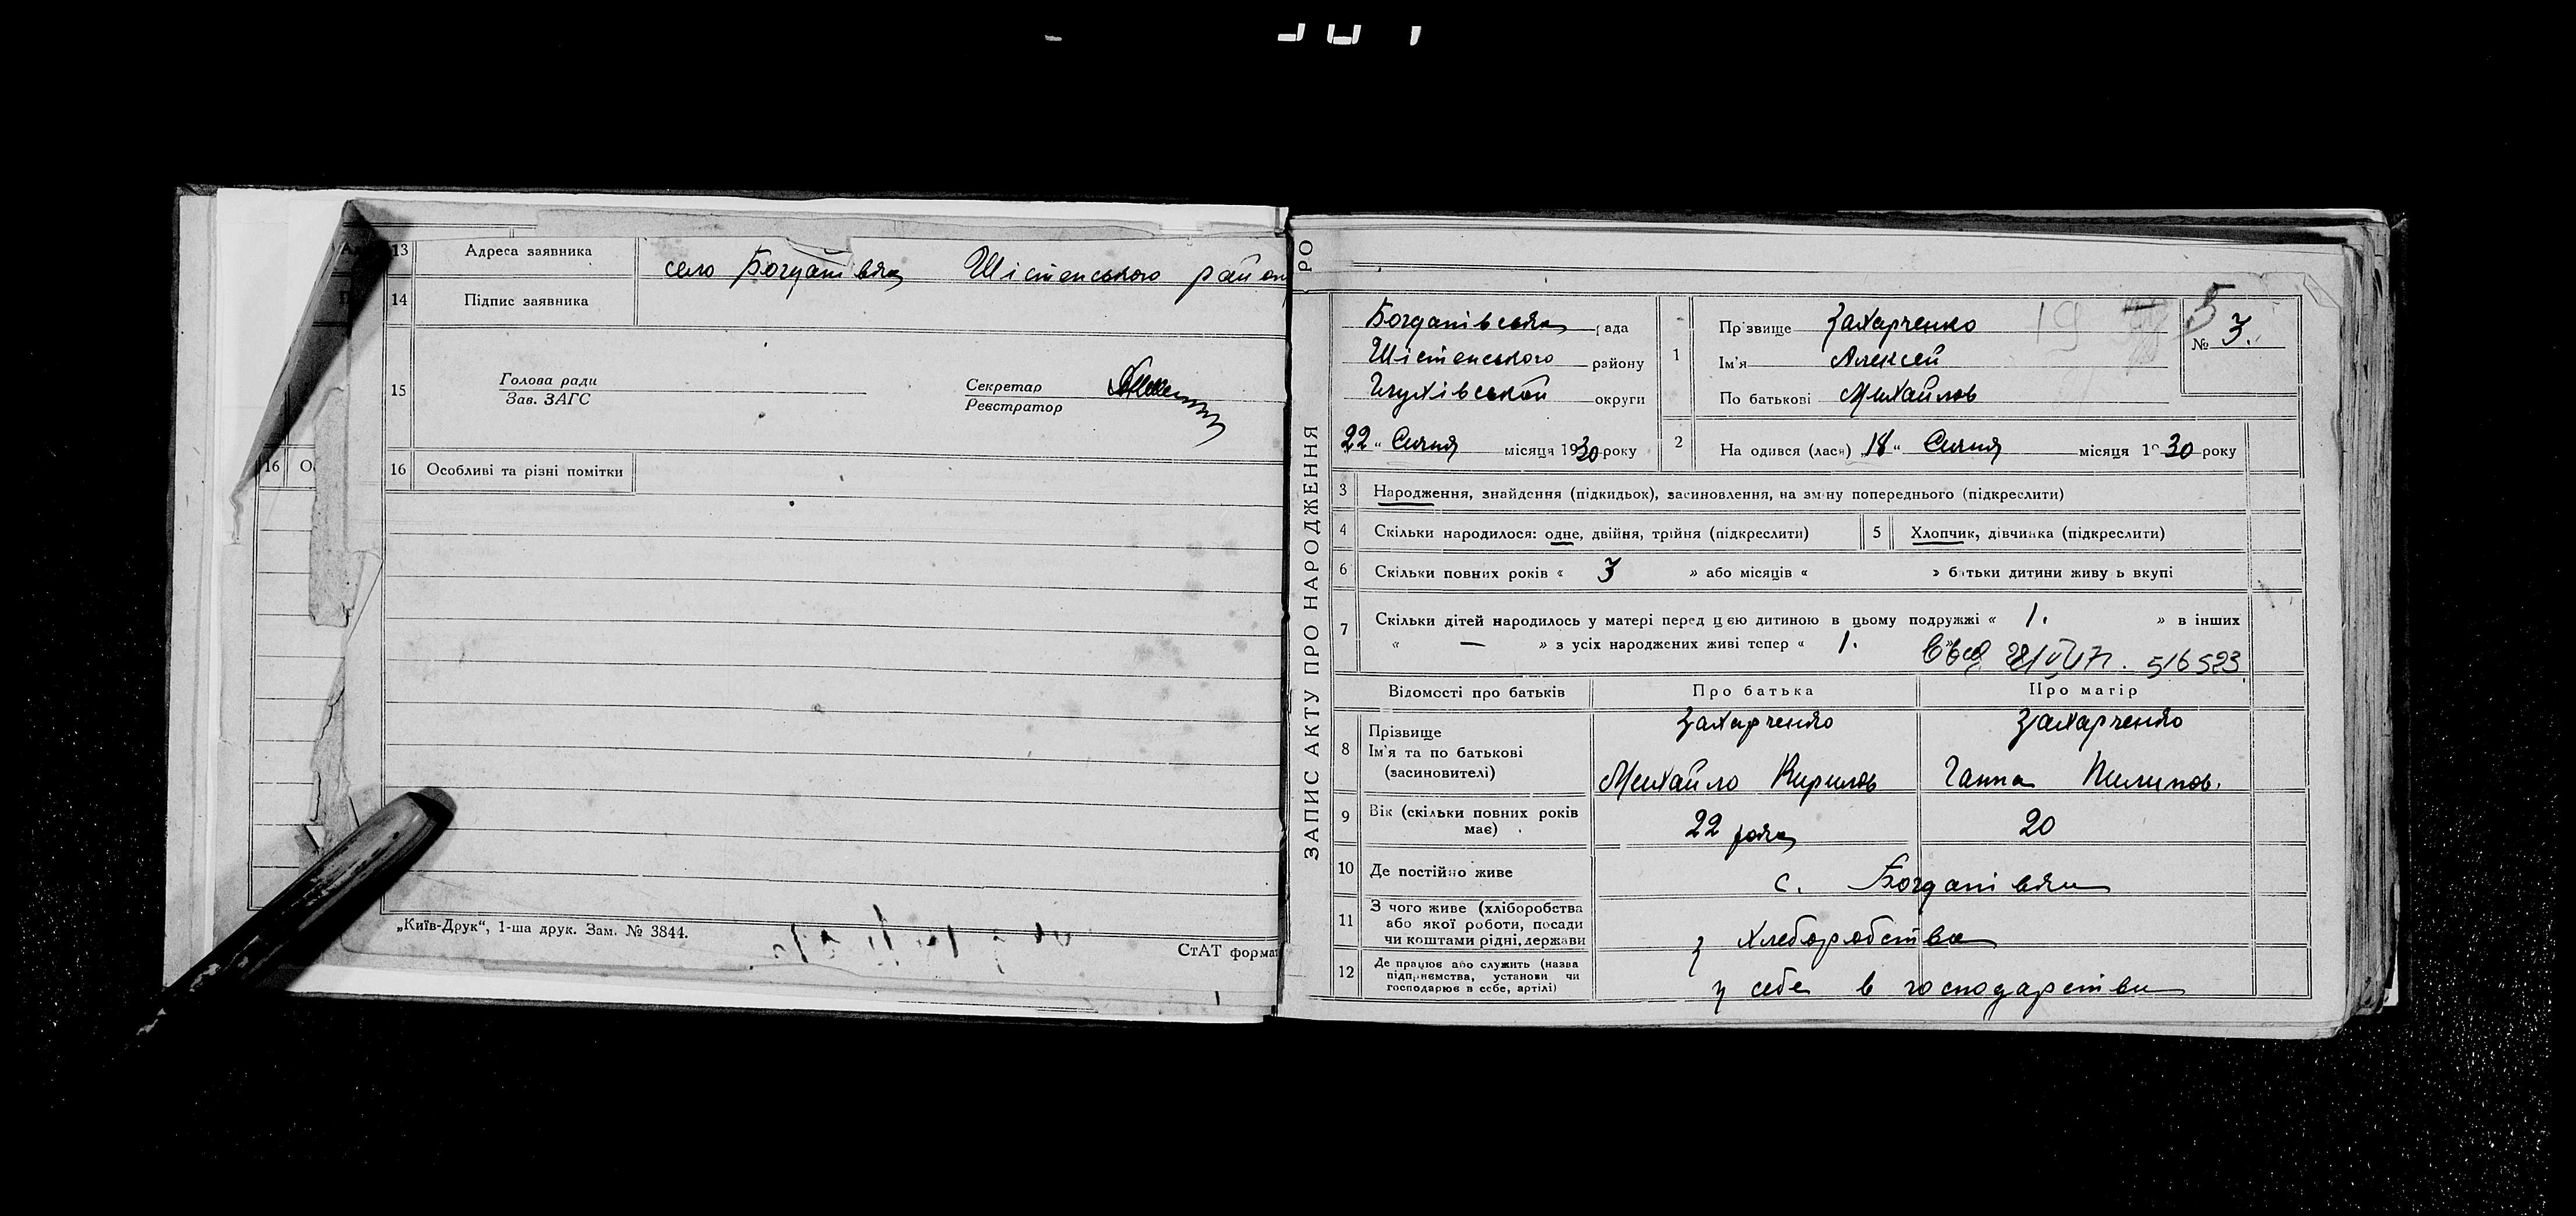 13 Адреса заявника село Богданівка Шістенського район
14 Підпис заявника
15 Голова ради
Зав. ЗАГС
Секретар
Реєстратор
16 О
16 Особливі та різні помітки
„Київ-Друк“, 1-ша друк. Зам. № 3844.
СтАТ формат
РО
ЗАПИС АКТУ ПРО НАРОДЖЕННЯ
Богданівська рада
Шістенського району
Глухівської округи
22 „ Січня місяця 1930 року
1 Прізвище Захарченко
Ім'я Алексей
По батькові Михайлов
19
5
№ 3.
2 На одився (лася) „18“ Січня місяця 19 30 року
3 Народження, знайдення (підкидьок), засиновлення, на зміну попереднього (підкреслити)
4 Скільки народилося: одне, двійня, трійня (підкреслити) 5 Хлопчик, дівчинка (підкреслити)
6 Скільки повних років « 3 » або місяців « » батьки дитини живуть вкупі
7 Скільки дітей народилось у матері перед цією дитиною в цьому подружжі « 1. » в інших
« — » з усіх народжених живі тепер « 1.
516523
Відомості про батьків Про батька Про матір
8 Прізвище Захарченко Захарченко
Ім'я та по батькові
(засиновителі) Михайло Кирилов Ганна Пилипов.
9 Вік (скільки повних років має) 22 роки 20
10 Де постійно живе с. Богданівки
11 З чого живе (хліборобства
або якої роботи, посади
чи коштами рідні, держави з хлеборобства
12 Де працює або служить (назва
підприємства, установи чи
господарює в себе, артілі) у себе в господарстви